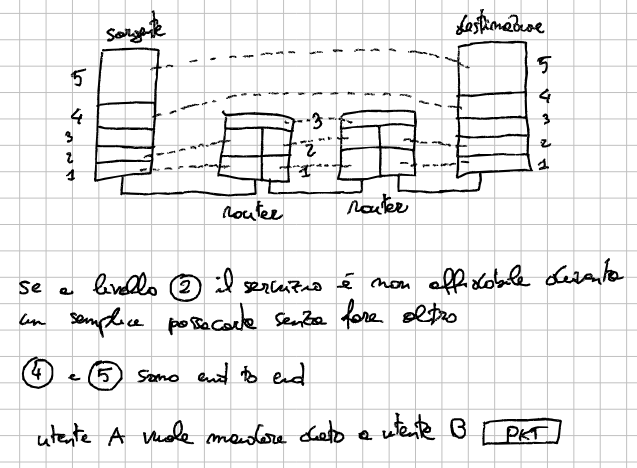 sorgente
destinazione
5
4
3
2
1
3
2
1
5
4
3
2
1
router
router
se a livello 2 il servizio è non affidabile diventa
un semplice passacarte senza fare altro
4 e 5 sono end to end
utente A vuole mandare dato a utente B PKT